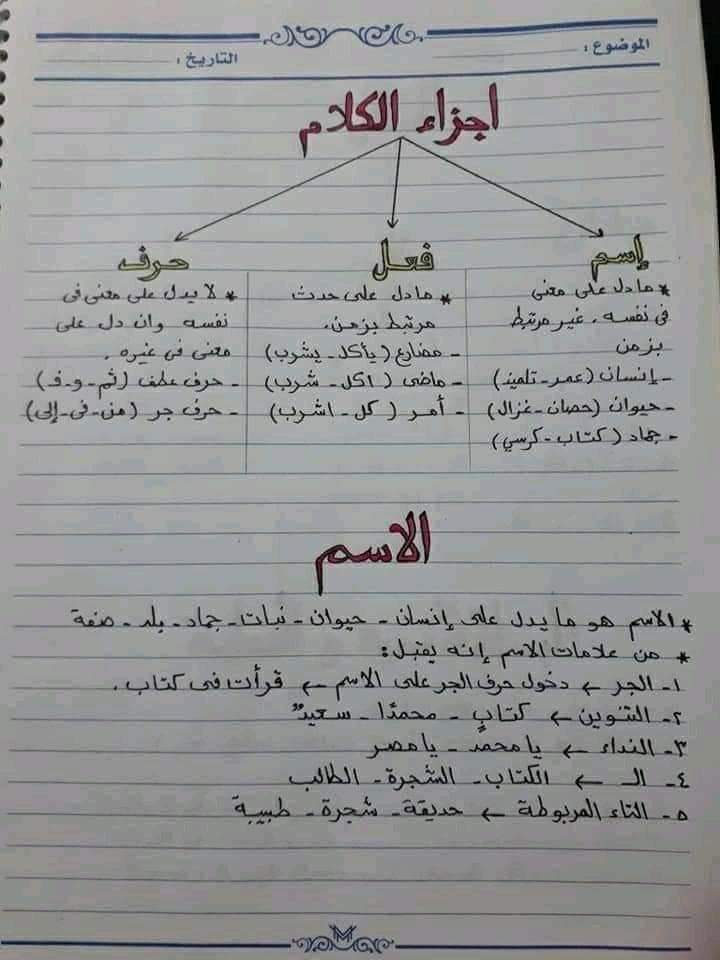 الموضوع :
التاريخ :
اجزاء الكلام
إسم
* مادل على معنى
فى نفسه . غير مرتبط
بزمن
- إنسان (عمر - تلميذ)
- حيوان (حصان - غزال)
- جماد (كتاب - كرسي)
فعل
* مادل على حدث
مرتبط بزمن .
- مضارع (يأكل - يشرب)
- ماضى (اكل - شرب)
- أمر (كل - اشرب)
حرف
* لا يدل على معنى فى
نفسه وان دل على
معنى فى غيره .
- حرف عطف (ثم - و - ف)
- حرف جر (من - فى - إلى)
الاسم
* الاسم هو ما يدل على إنسان - حيوان - نبات - جماد - بلد - صفة
* من علامات الاسم إنه يقبل :
١- الجر ← دخول حرف الجر على الاسم ← قرأت فى كتاب .
٢- التنوين ← كتابٍ - محمدًا - سعيدٌ
٣- النداء ← يا محمد - يا مصر
٤- الـ ← الكتاب - الشجرة - الطالب
٥- التاء المربوطة ← حديقة - شجرة - طبيبة